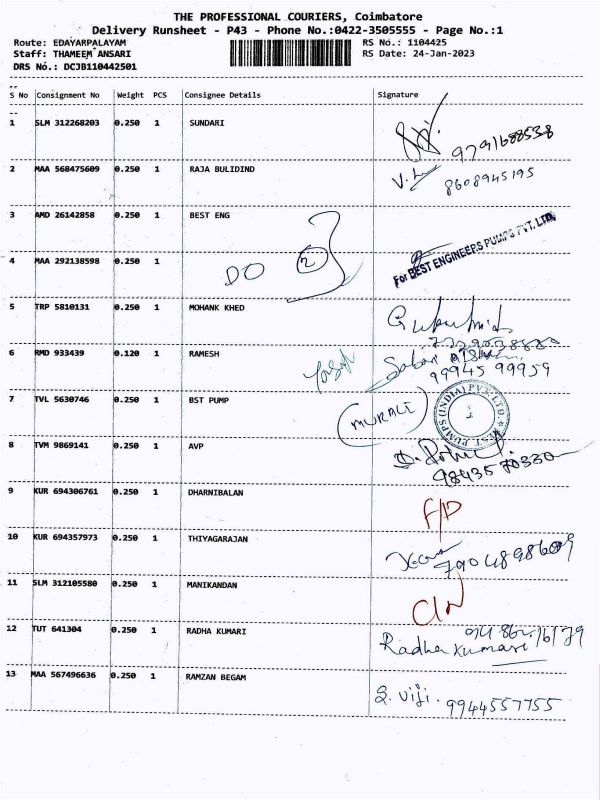 THE PROFESSIONAL COURIERS, Coimbatore
Delivery Runsheet - P43 - Phone No.:0422-3505555 - Page No.:1
Route: EDAYARPALAYAM RS No.: 1104425
Staff: THAMEEM ANSARI RS Date: 24-Jan-2023
DRS No.: DCJB110442501
S No Consignment No Weight PCS Consignee Details Signature
1 SLM 312268203 0.250 1 SUNDARI
9791688538
2 MAA 568475609 0.250 1 RAJA BULIDIND
8608945195
3 AMD 26142858 0.250 1 BEST ENG
For BEST ENGINEERS PUMPS PVT. LTD.
4 MAA 292138598 0.250 1
DO 2
5 TRP 5810131 0.250 1 MOHANK KHED
6 RMD 933439 0.120 1 RAMESH
99945 99959
7 TVL 5630746 0.250 1 BST PUMP
MURALI
BEST PUMPS (INDIA) PVT. LTD.
8 TVM 9869141 0.250 1 AVP
9843570330
9 KUR 694306761 0.250 1 DHARNIBALAN
F/D
10 KUR 694357973 0.250 1 THIYAGARAJAN
7904898609
11 SLM 312105580 0.250 1 MANIKANDAN
12 TUT 641304 0.250 1 RADHA KUMARI
Radha Kumari
13 MAA 567496636 0.250 1 RAMZAN BEGAM
S. Viji. 9944557755